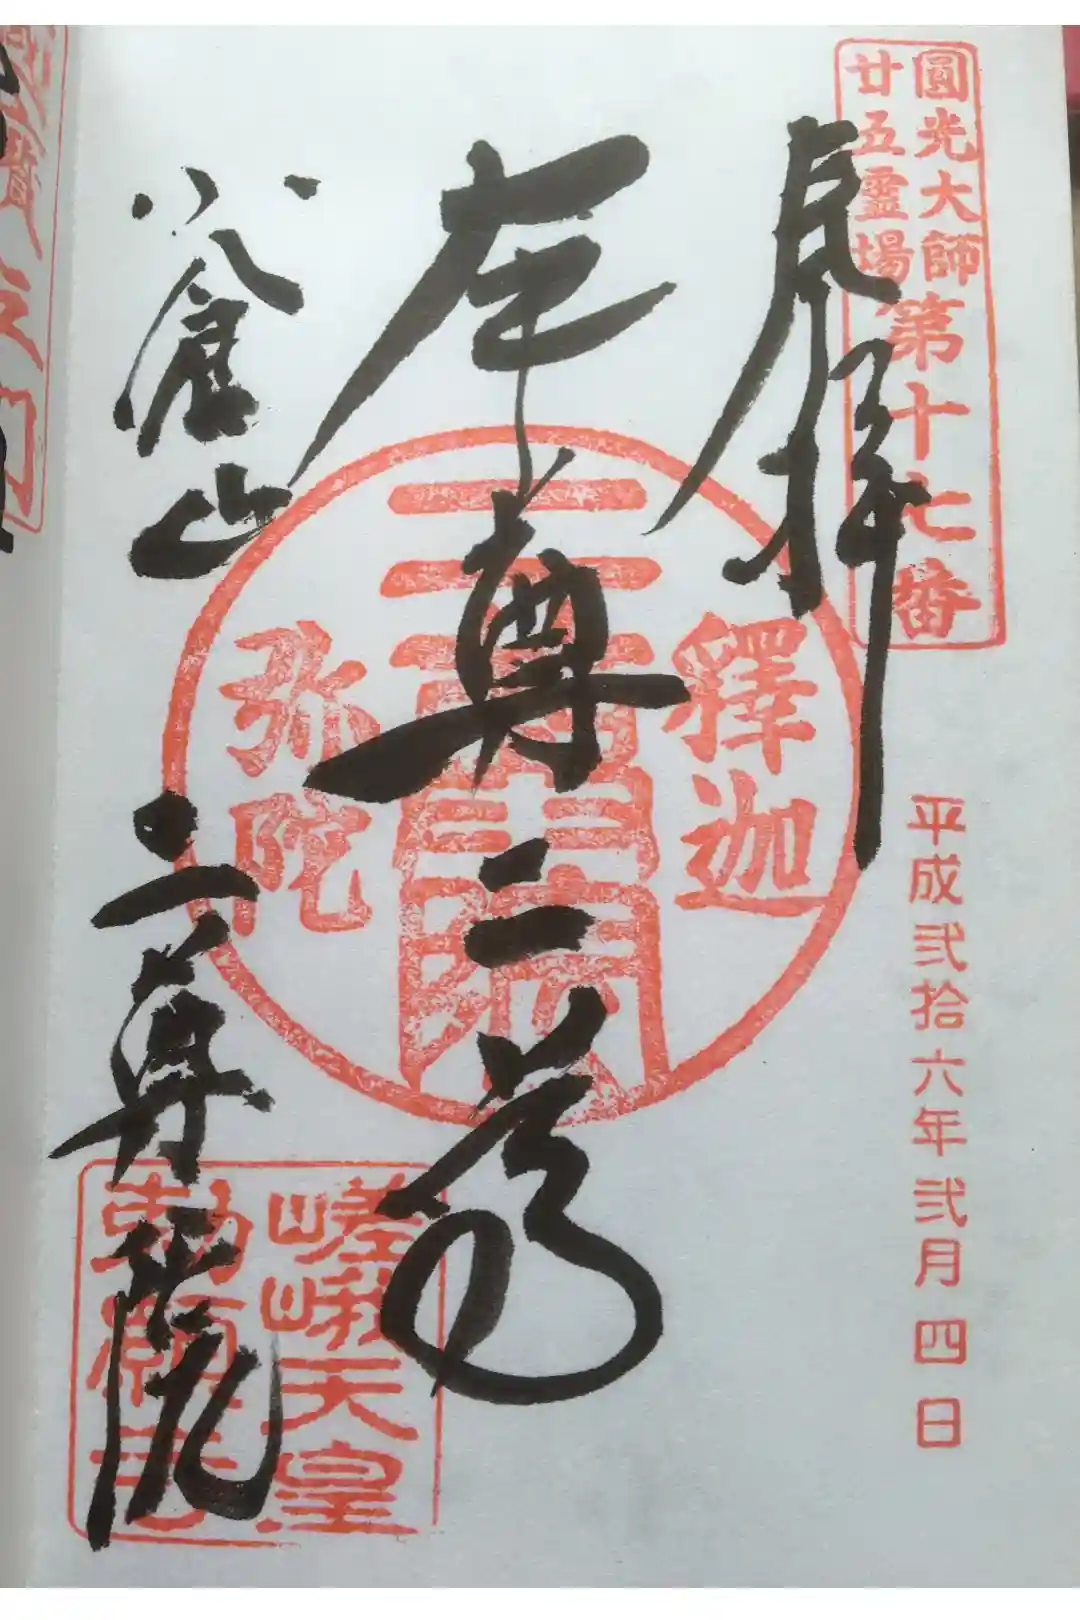 圓光大師
廿五霊場
第十七番
奉拝
平成弐拾六年弐月四日
釋迦
弥陀
本尊二尊
小倉山
二尊院
嵯峨天皇
勅願寺